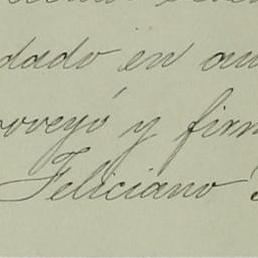 dado en au
roveyó y firm
Feliciano